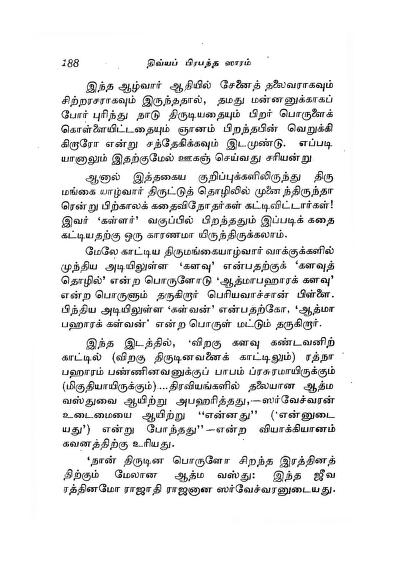 188 திவ்யப் பிரபந்த ஸாரம்
இந்த ஆழ்வார் ஆதியில் சேனைத் தலைவராகவும்
சிற்றரசராகவும் இருந்ததால், தமது மன்னனுக்காகப்
போர் புரிந்து நாடு திருடியதையும் பிறர் பொருளைக்
கொள்ளையிட்டதையும் ஞானம் பிறந்தபின் வெறுக்கி
கிறாரோ என்று சந்தேகிக்கவும் இடமுண்டு. எப்படி
யானாலும் இதற்குமேல் ஊகஞ் செய்வது சரியன்று
ஆனால் இத்தகைய குறிப்புக்களிலிருந்து திரு
மங்கை யாழ்வார் திருட்டுத் தொழிலில் முனைந்திருந்தா
ரென்று பிற்காலக் கதைவிநோதர்கள் கட்டிவிட்டார்கள்!
இவர் ‘கள்ளர்’ வகுப்பில் பிறந்ததும் இப்படிக் கதை
கட்டியதற்கு ஒரு காரணமா யிருந்திருக்கலாம்.
மேலே காட்டிய திருமங்கையாழ்வார் வாக்குக்களில்
முந்திய அடியிலுள்ள ‘களவு’ என்பதற்குக் ‘களவுத்
தொழில்’ என்ற பொருளோடு ‘ஆத்மாபஹாரக் களவு’
என்ற பொருளும் தருகிறார் பெரியவாச்சான் பிள்ளை.
பிந்திய அடியிலுள்ள ‘கள்வன்’ என்பதற்கோ, ‘ஆத்மா
பஹாரக் கள்வன்’ என்ற பொருள் மட்டும் தருகிறார்.
இந்த இடத்தில், ‘விறகு களவு கண்டவனிற்
காட்டில் (விறகு திருடினவனைக் காட்டிலும்) ரத்நா
பஹாரம் பண்ணினவனுக்குப் பாபம் ப்ரசுரமாயிருக்கும்
(மிகுதியாயிருக்கும்)...திரவியங்களில் தலையான ஆத்ம
வஸ்துவை ஆயிற்று அபஹரித்தது,—ஸர்வேச்வரன்
உடைமையை ஆயிற்று “என்னது” (‘என்னுடை
யது’) என்று போந்தது”—என்ற வியாக்கியானம்
கவனத்திற்கு உரியது.
‘நான் திருடின பொருளோ சிறந்த இரத்தினத்
திற்கும் மேலான ஆத்ம வஸ்து: இந்த ஜீவ
ரத்தினமோ ராஜாதி ராஜனான ஸர்வேச்வரனுடையது.